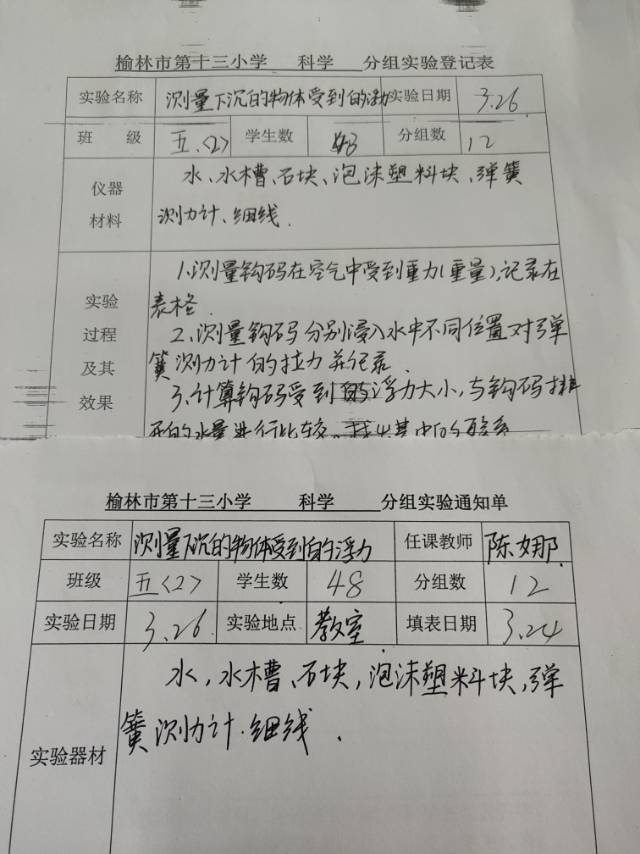 榆林市第十三小学 科学 分组实验登记表
实验名称 测量下沉的物体受到的浮力 实验日期 3.26
班级 五〈2〉 学生数 48 分组数 12
仪器材料 水、水槽、石块、泡沫塑料块、弹簧
测力计、细线.
实验过程及其效果 1.测量钩码在空气中受到重力(重量),记录在
表格.
2.测量钩码分别浸入水中不同位置对弹
簧测力计的拉力并记录.
3.计算钩码受到的浮力大小,与钩码排
开的水量进行比较,找出其中的联系
榆林市第十三小学 科学 分组实验通知单
实验名称 测量下沉的物体受到的浮力 任课教师 陈娜
班级 五〈2〉 学生数 48 分组数 12
实验日期 3.26 实验地点 教室 填表日期 3.24
实验器材 水,水槽、石块,泡沫塑料块,弹
簧测力计.细线.